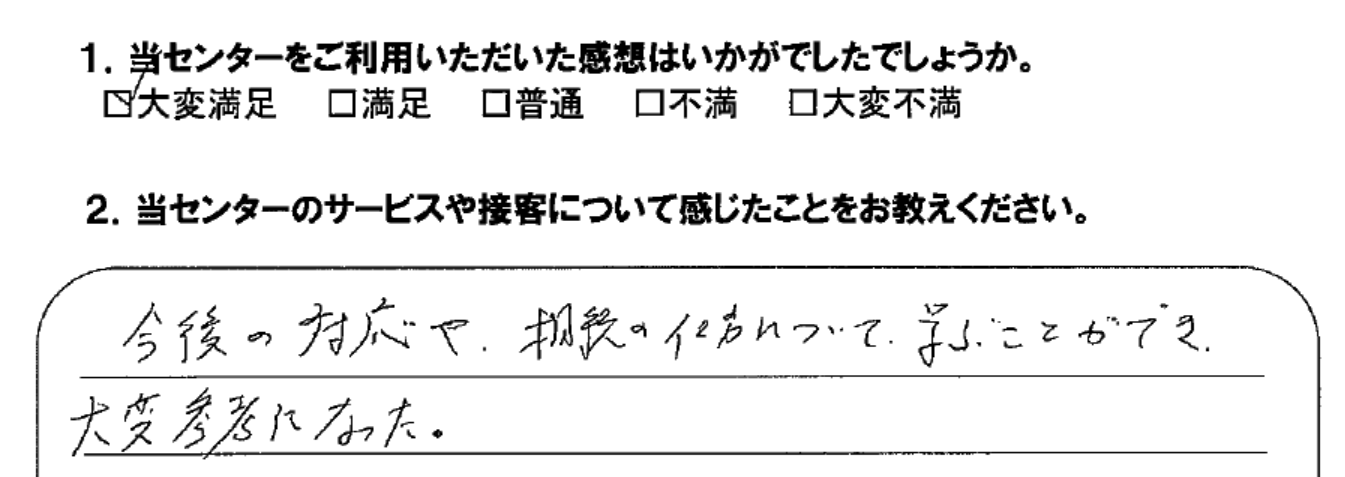 1. 当センターをご利用いただいた感想はいかがでしたでしょうか。
☑大変満足 □満足 □普通 □不満 □大変不満
2. 当センターのサービスや接客について感じたことをお教えください。
今後の対応や、相続の仕方について、学ぶことができ、
大変参考になった。